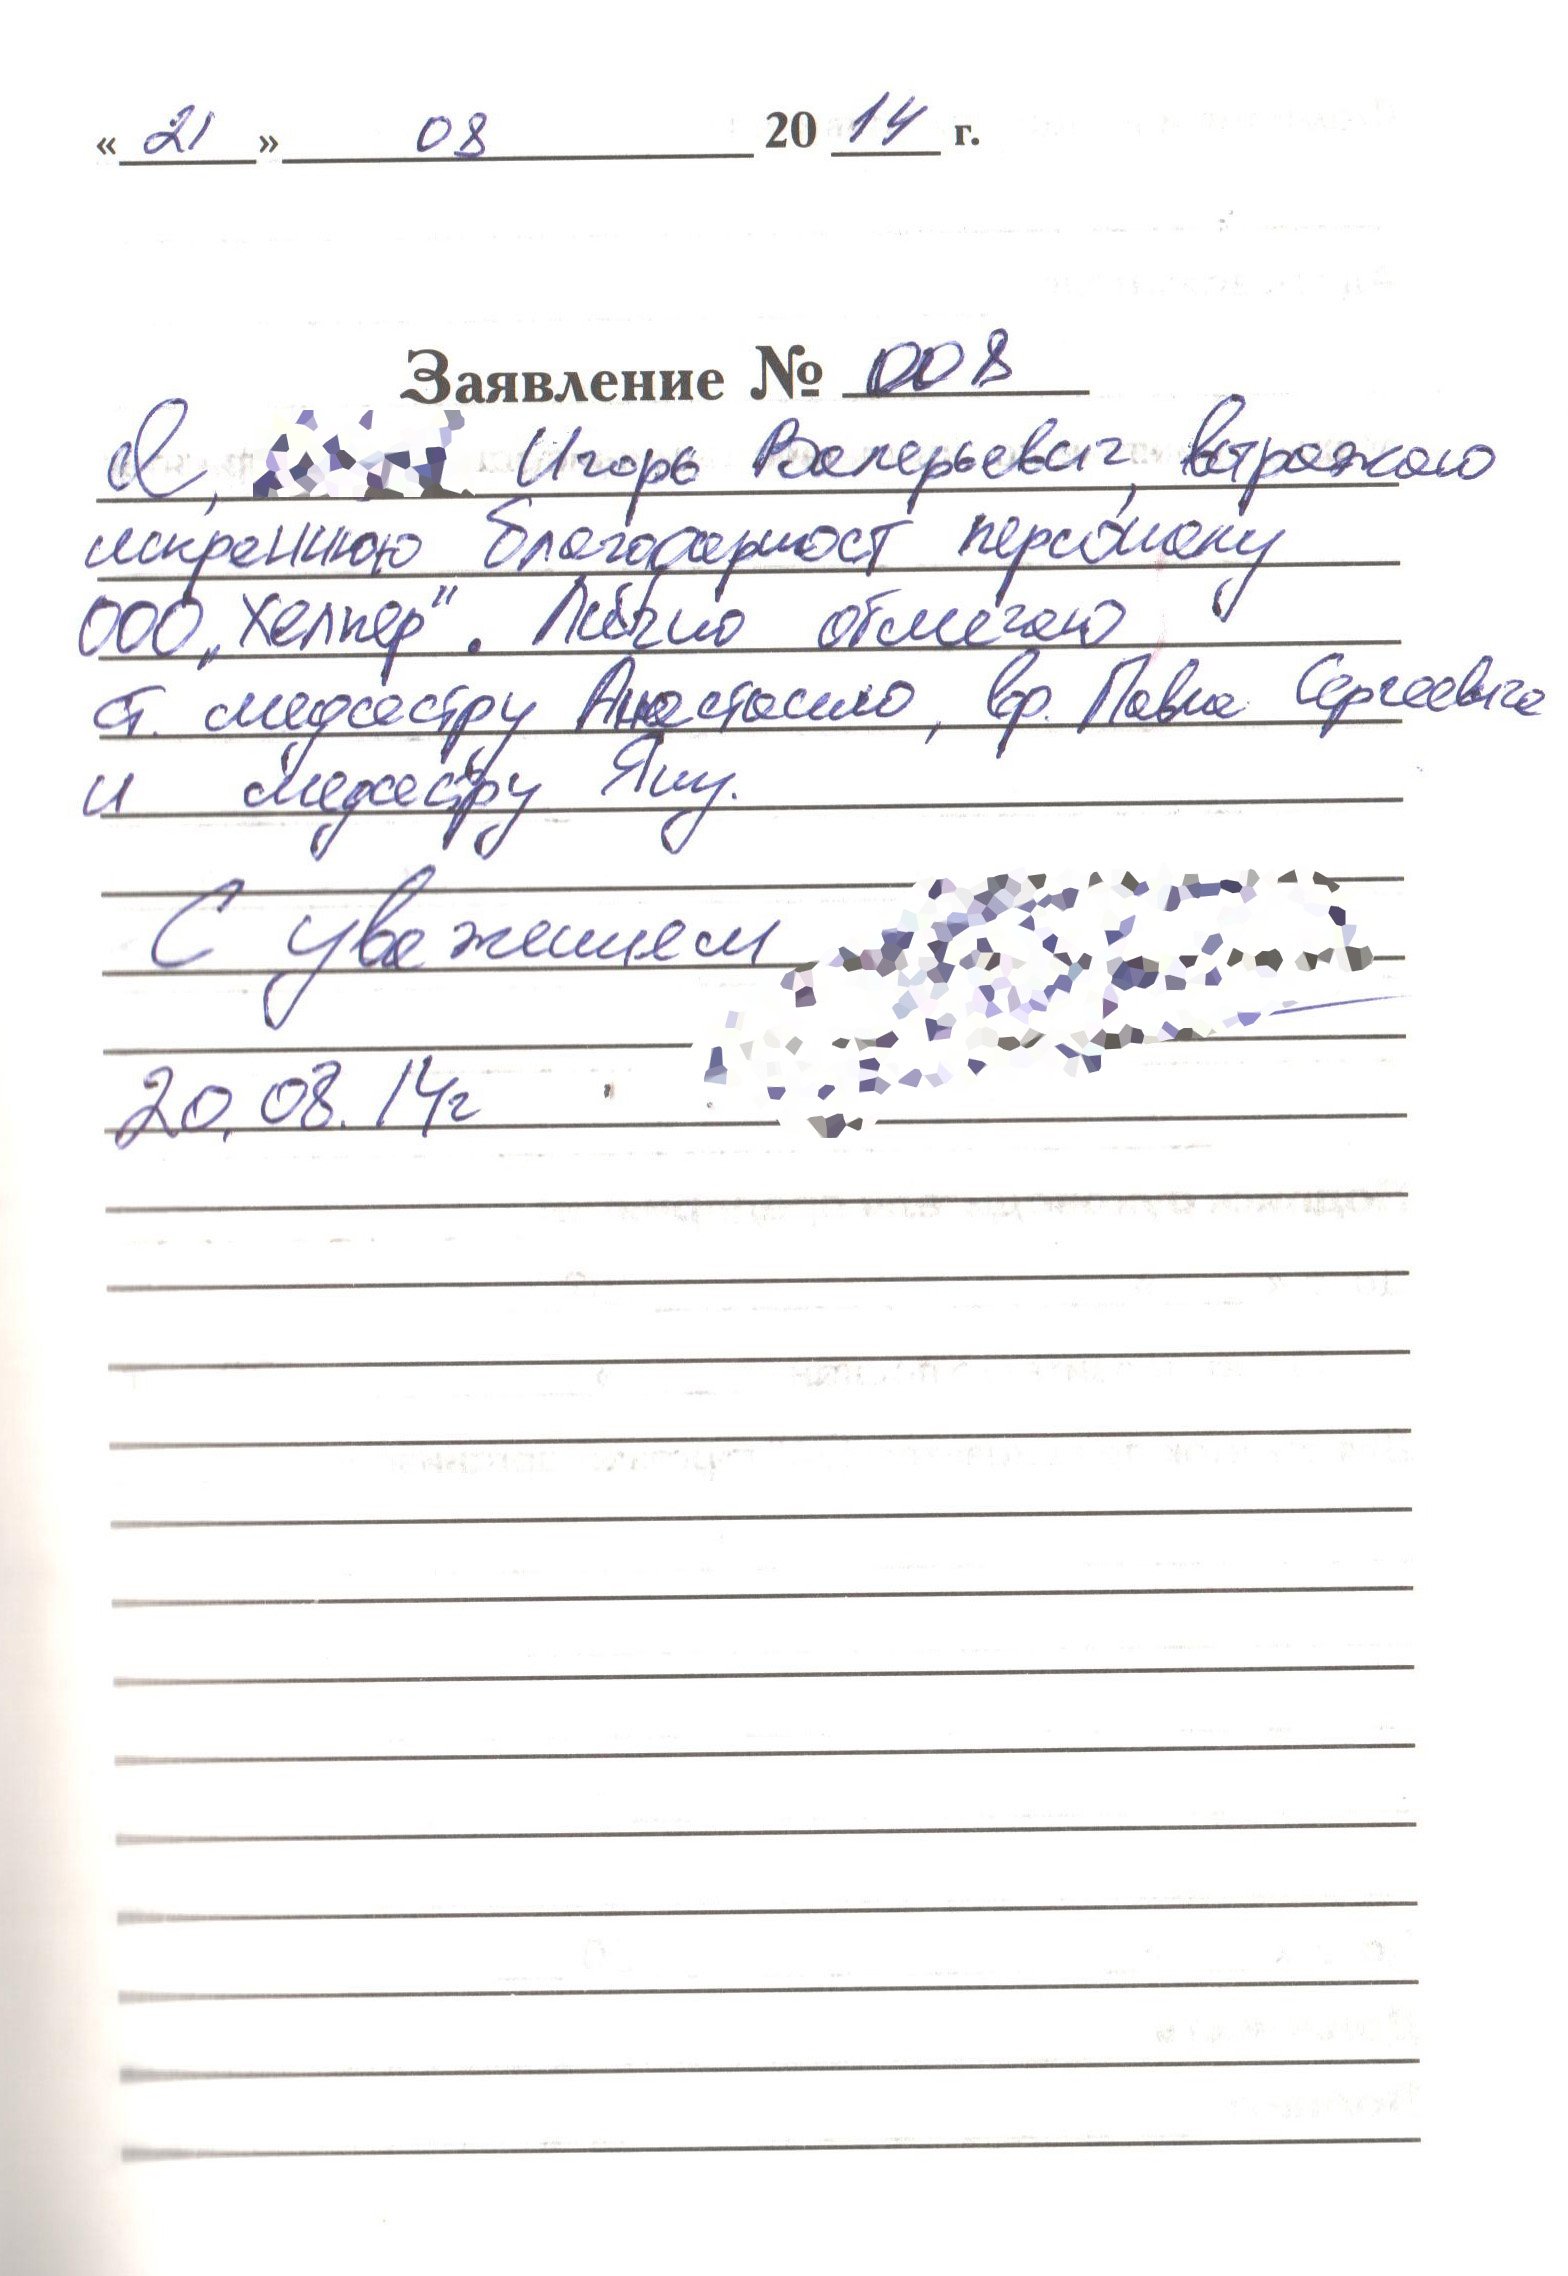 « 21 » 08 20 14 г.
Заявление № 008
Я, Игорь Валерьевич, выражаю
искреннюю благодарност персоналу
ООО „Хелпер“. Лично отмечаю
ст. медсестру Анастасию, вр. Павла Сергеевича
и медсестру Яну.
С уважением
20.08.14г